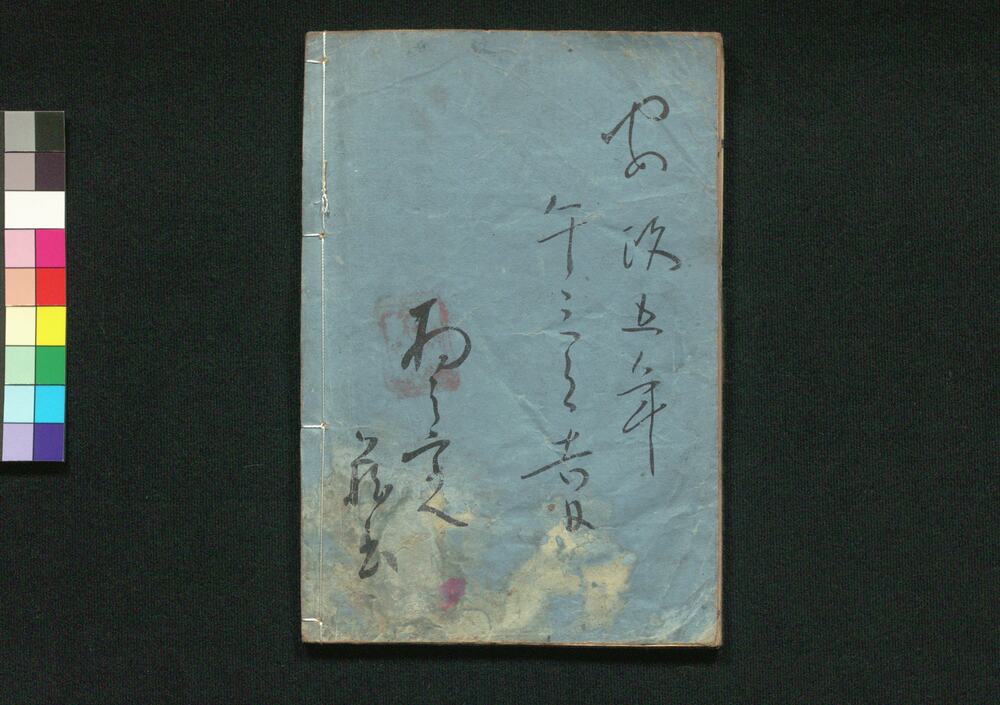 安政五年
午三月吉日
蔵書